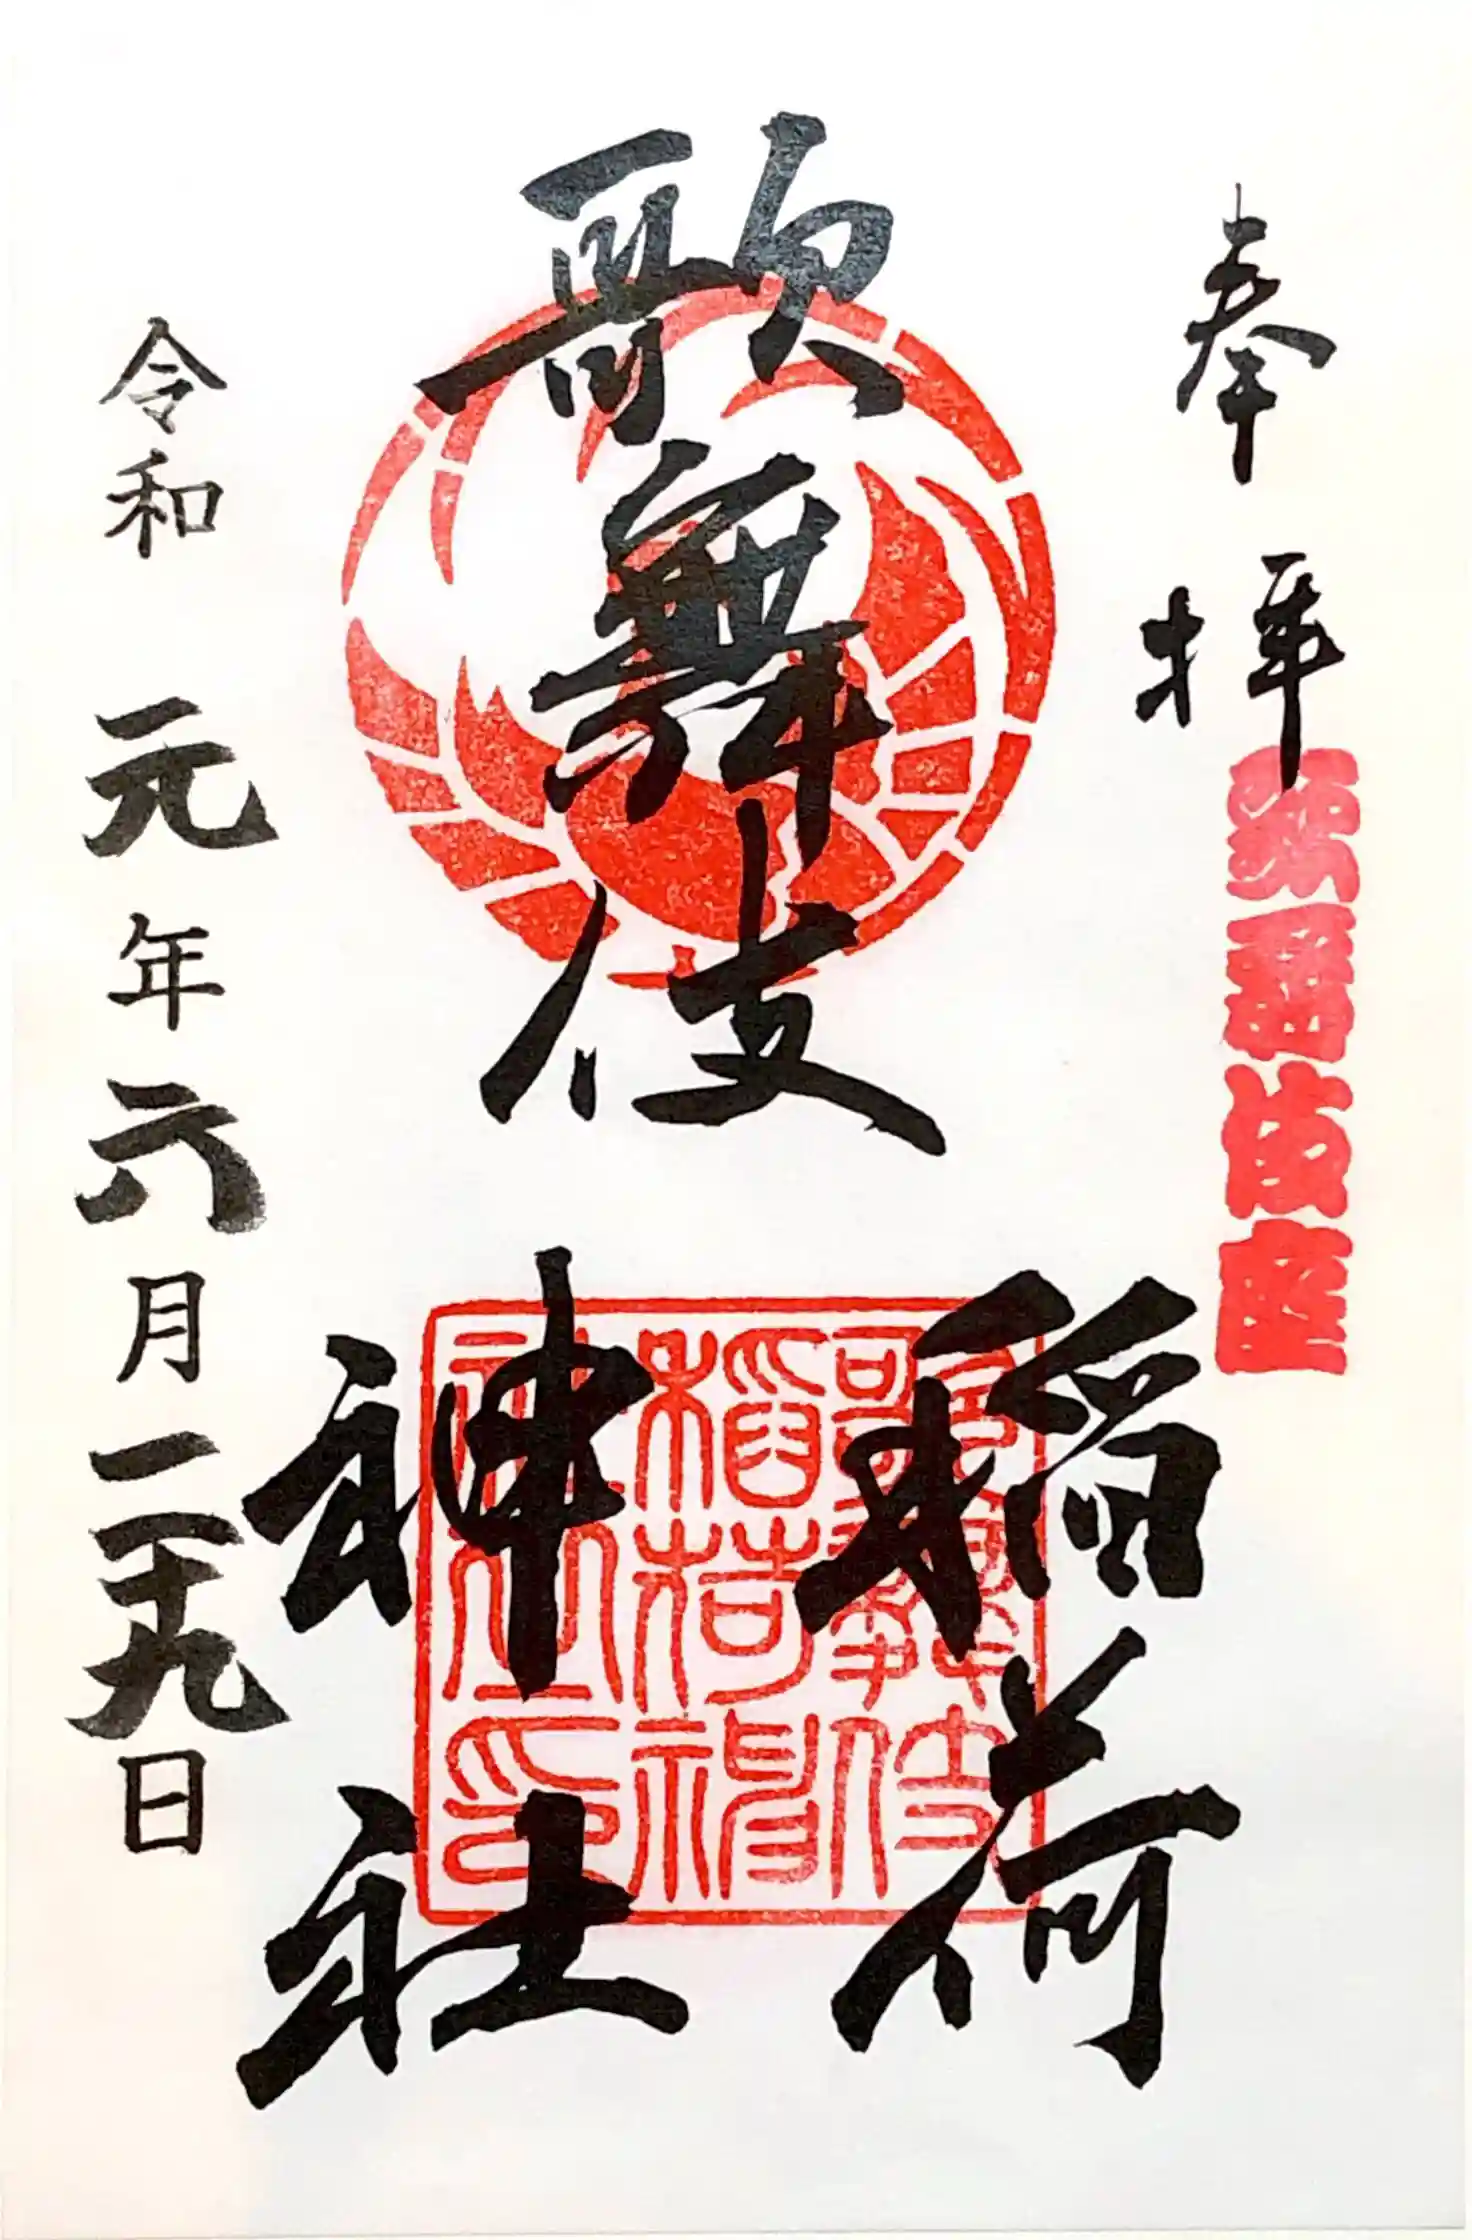 奉拝
歌舞伎座
歌舞伎
稲荷
神社
歌舞伎
稲荷神
社印
令和元年六月二十九日